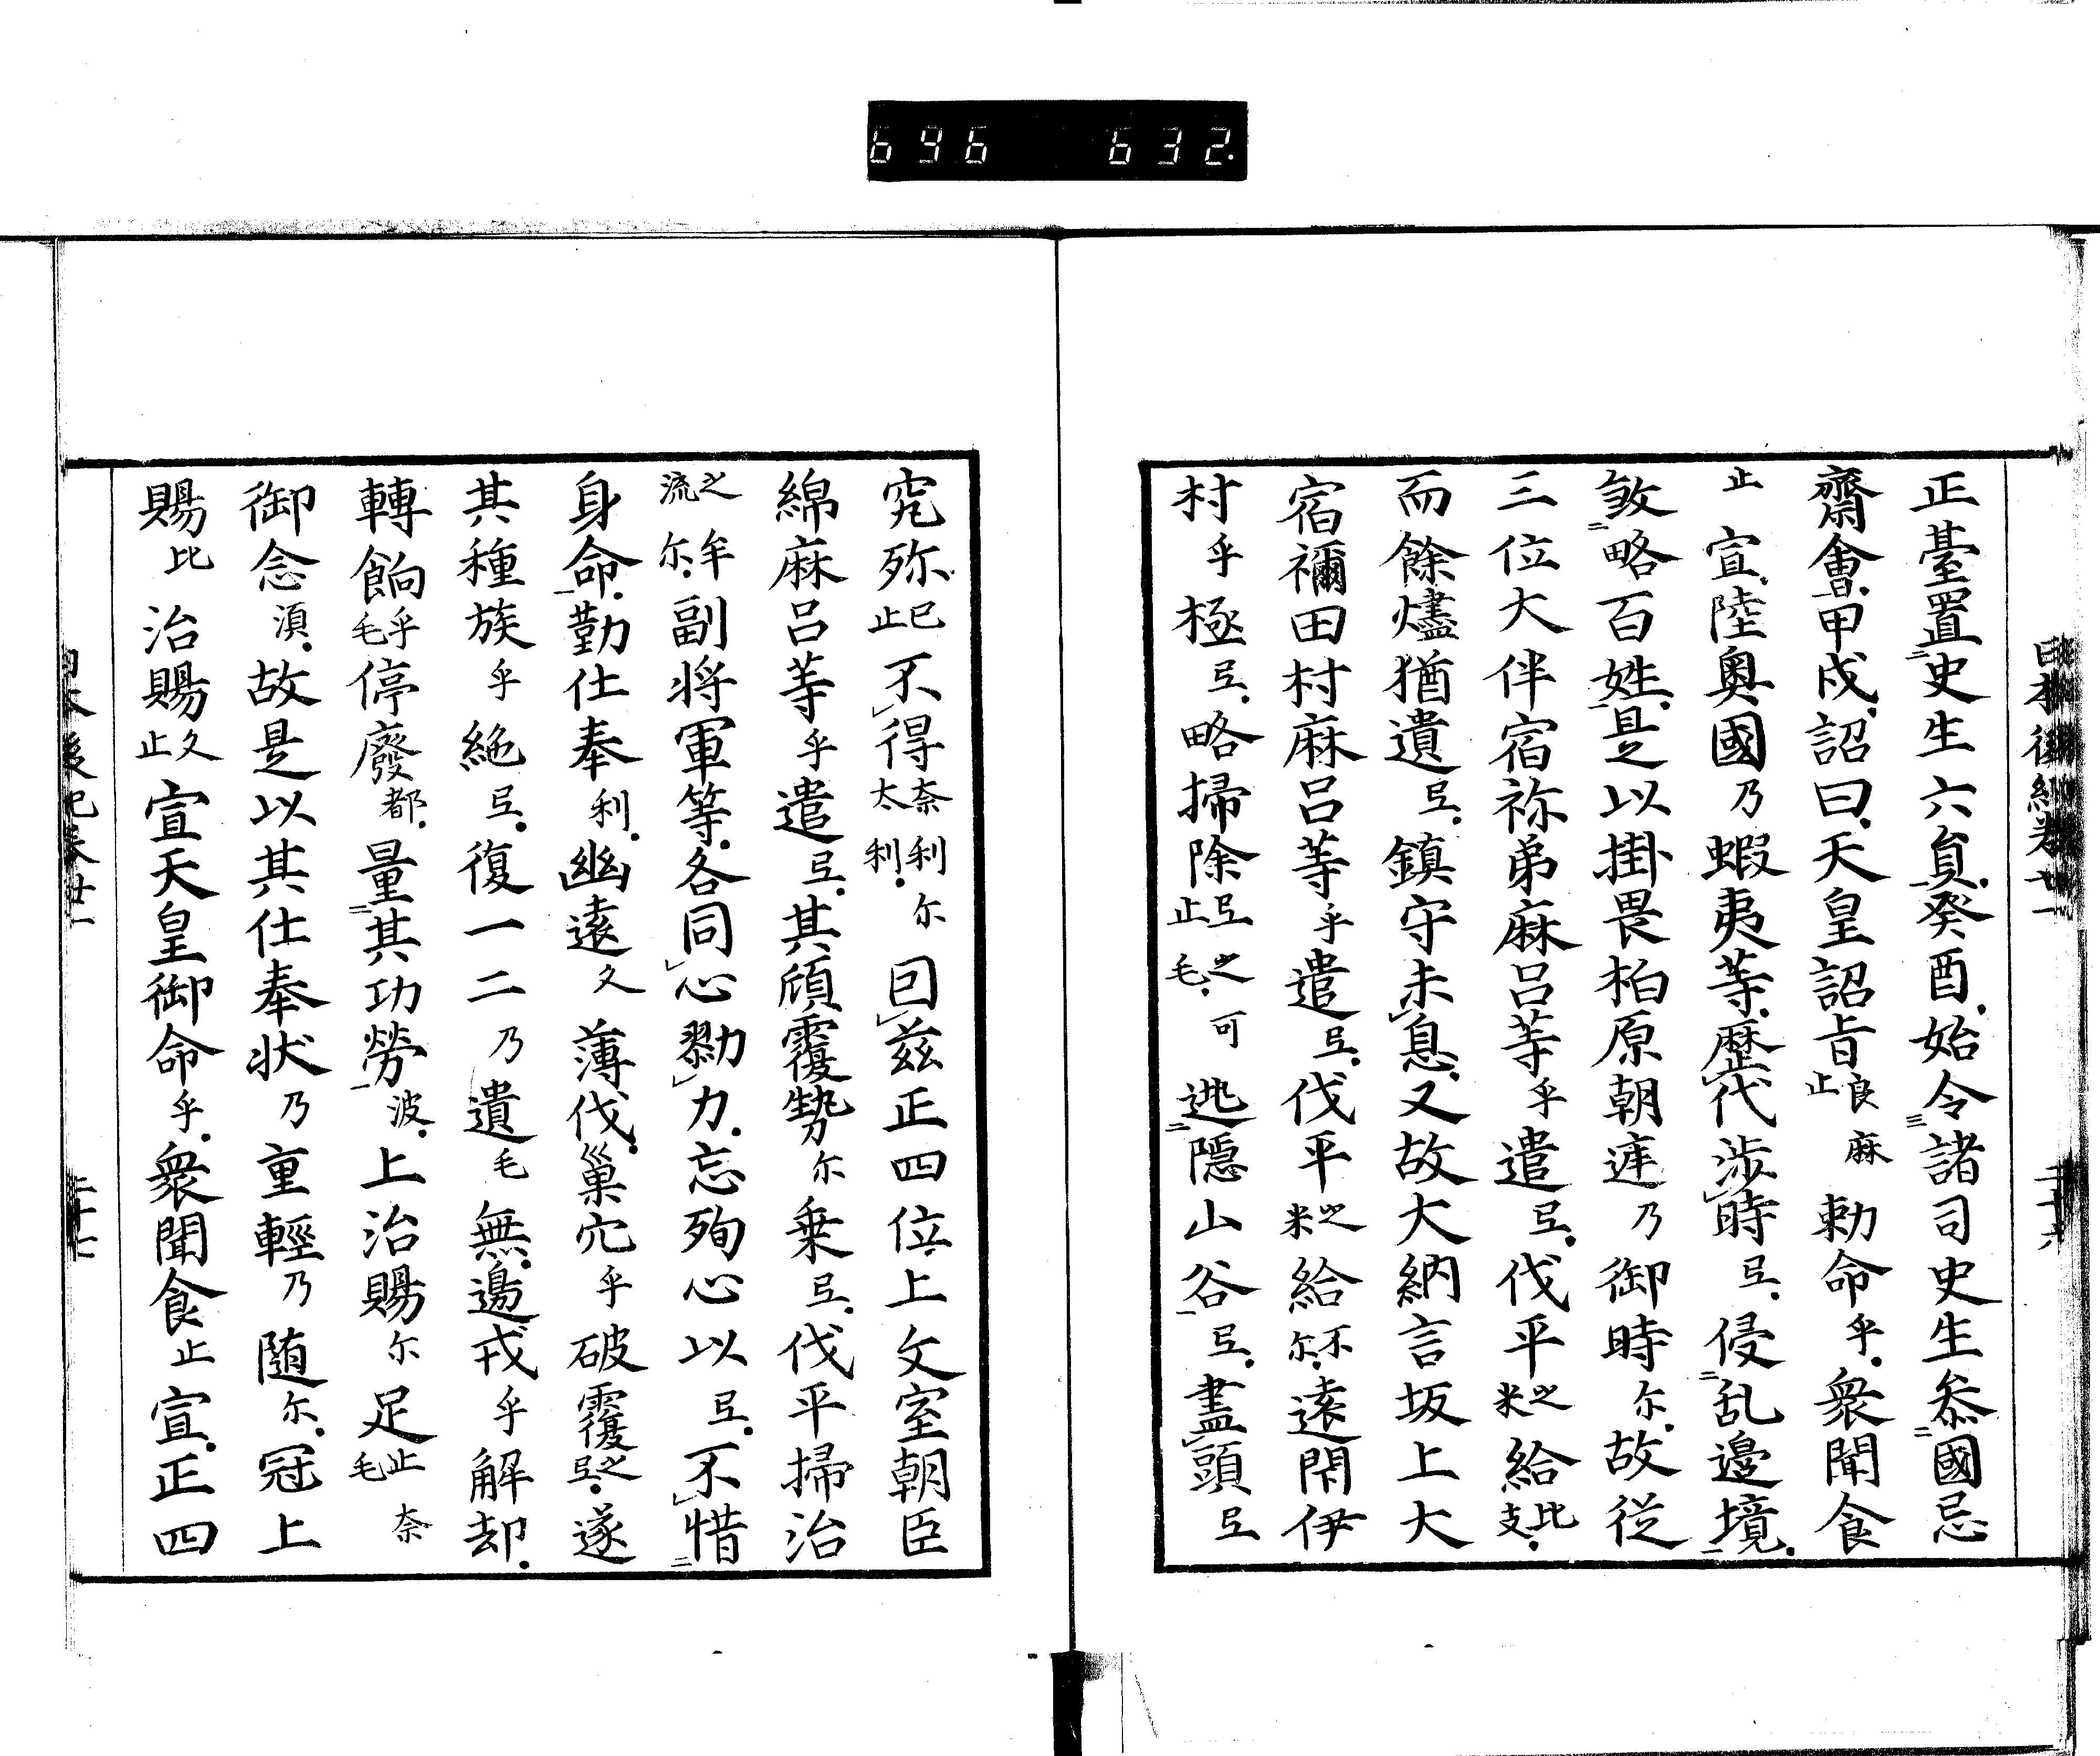 696 632.
日本後紀卷廿一
正臺置史生六貟癸酉始令諸司史生叅國忌
齋會甲戌詔曰天皇詔旨良麻止勅命乎衆聞食
止宣陸奧國乃蝦夷等歴代渉時弖侵乱邊境
敓略百姓是以掛畏柏原朝廷乃御時尓故従
三位大伴宿祢弟麻呂等乎遣弖伐平之米給比支
而餘燼猶遺弖鎮守未息又故大納言坂上大
宿禰田村麻呂等乎遣弖伐平之米給不尓遠閇伊
村乎極弖略掃除弖之止毛可逃隱山谷弖盡頭弖
究殄巳止不得奈利太利尓回玆正四位上文室朝臣
綿麻呂等乎遣弖其頎覆勢尓乗弖伐平掃治
之牟流尓副将軍等各同心勠力忘殉心以弖不惜
身命勤仕奉利幽遠久薄伐巢穴乎破覆之弖遂
其種族乎絶弖復一二乃遺毛無邊戎乎解却
轉餉乎毛停廢都量其功勞波上治賜尓足止奈毛
御念湏故是以其仕奉状乃重輕乃随尓冠上
賜比治賜久止宣天皇御命乎衆聞食止宣正四
日本後紀卷廿一